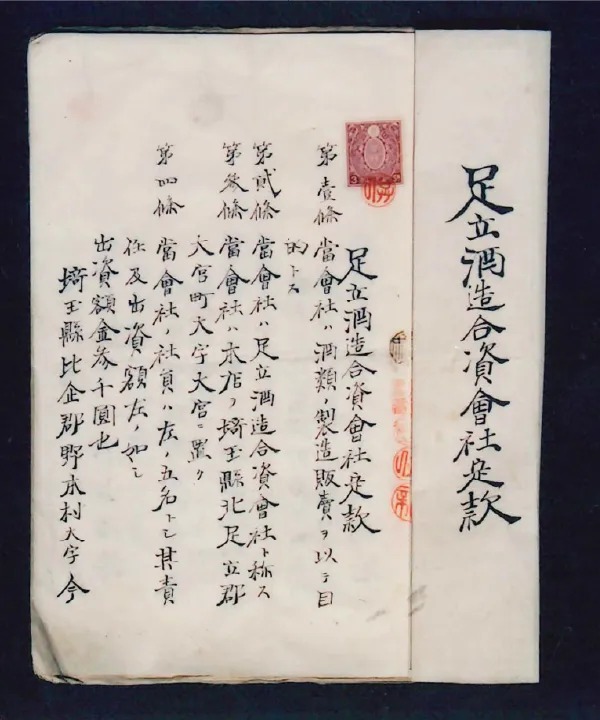 足立酒造合資會社定款
足立酒造合資會社定款
第壹條 當會社ハ酒類ノ製造販賣ヲ以テ目
的トス
第貳條 當會社ハ足立酒造合資會社ト称ス
第参條 當會社ハ本店ヲ埼玉縣北足立郡
大宮町大字大宮ニ置ク
第四條 當會社ノ社員ハ左ノ五名トシ其責
任及出資額左ノ如シ
出資額金参千圓也
埼玉縣比企郡野本村大字今